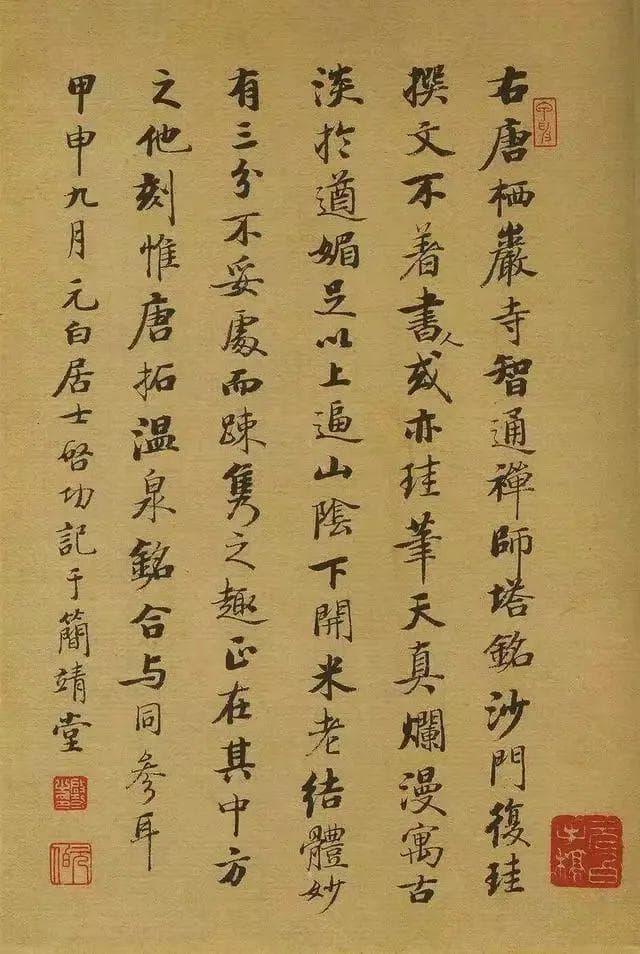 右唐栖巖寺智通禪師塔銘沙門復珪
撰文不著書人或亦珪筆天真爛漫寓古
淡於遒媚足以上逼山陰下開米老結體妙
有三分不妥處而踈雋之趣正在其中方
之他刻惟唐拓温泉銘合与同參耳
甲申九月元白居士啓功記于簡靖堂
啓功
元伯
元白